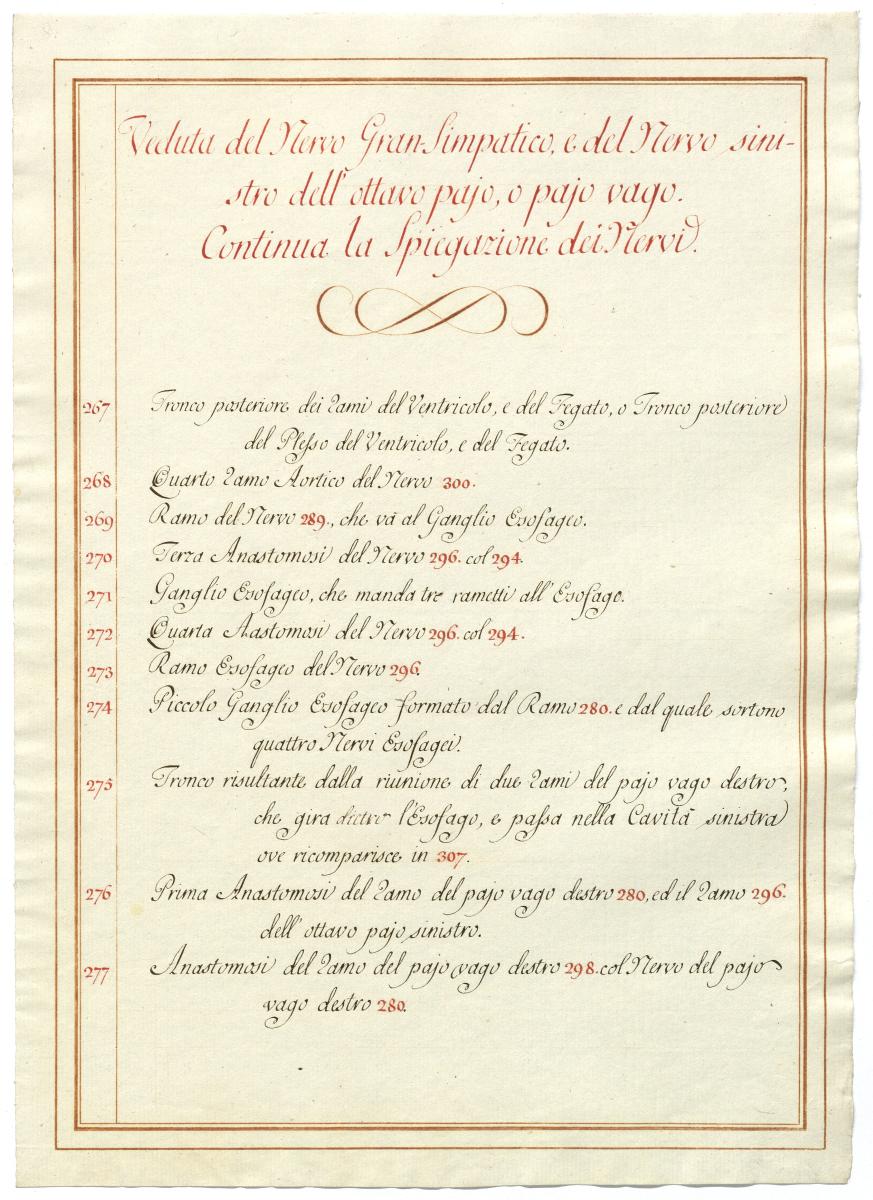 Veduta del Nervo Gran-Simpatico, e del Nervo sini-
stro dell' ottavo pajo, o pajo vago.
Continua la Spiegazione dei Nervi.
267 Tronco posteriore dei Rami del Ventricolo, e del Fegato, o Tronco posteriore
del Plesso del Ventricolo, e del Fegato.
268 Quarto Ramo Aortico del Nervo 300.
269 Ramo del Nervo 289., che và al Ganglio Esofageo.
270 Terza Anastomosi del Nervo 296. col 294.
271 Ganglio Esofageo, che manda tre rametti all' Esofago.
272 Quarta Aastomosi del Nervo 296. col 294.
273 Ramo Esofageo del Nervo 296.
274 Piccolo Ganglio Esofageo formato dal Ramo 280. e dal quale sortono
quattro Nervi Esofagei.
275 Tronco risultante dalla riunione di due Rami del pajo vago destro,
che gira dietro l'Esofago, e passa nella Cavità sinistra
ove ricomparisce in 307.
276 Prima Anastomosi del Ramo del pajo vago destro 280, ed il Ramo 296.
dell' ottavo pajo sinistro.
277 Anastomosi del Ramo del pajo vago destro 298. col Nervo del pajo
vago destro 280.